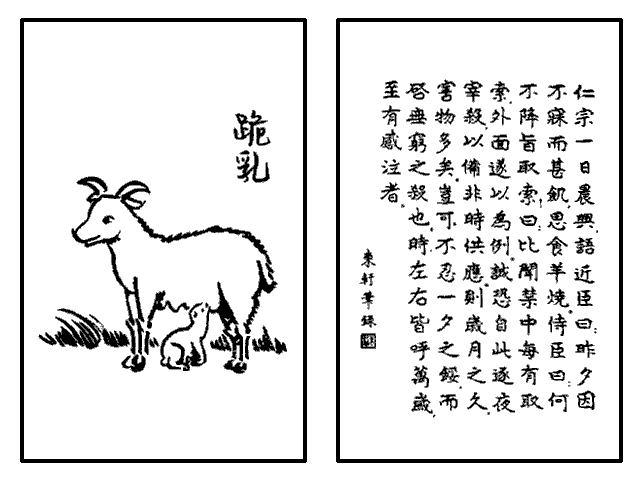 跪乳
仁宗一日晨興,語近臣曰:昨夕因
不寐而甚飢,思食羊燒。侍臣曰:何
不降旨取索。曰:比聞禁中每有取
索,外面遂以為例。誠恐自此逐夜
宰殺,以備非時供應,則歲月之久,
害物多矣。豈可不忍一夕之餒,而
啓無窮之殺也。時左右皆呼萬歲,
至有感泣者。
東軒筆錄